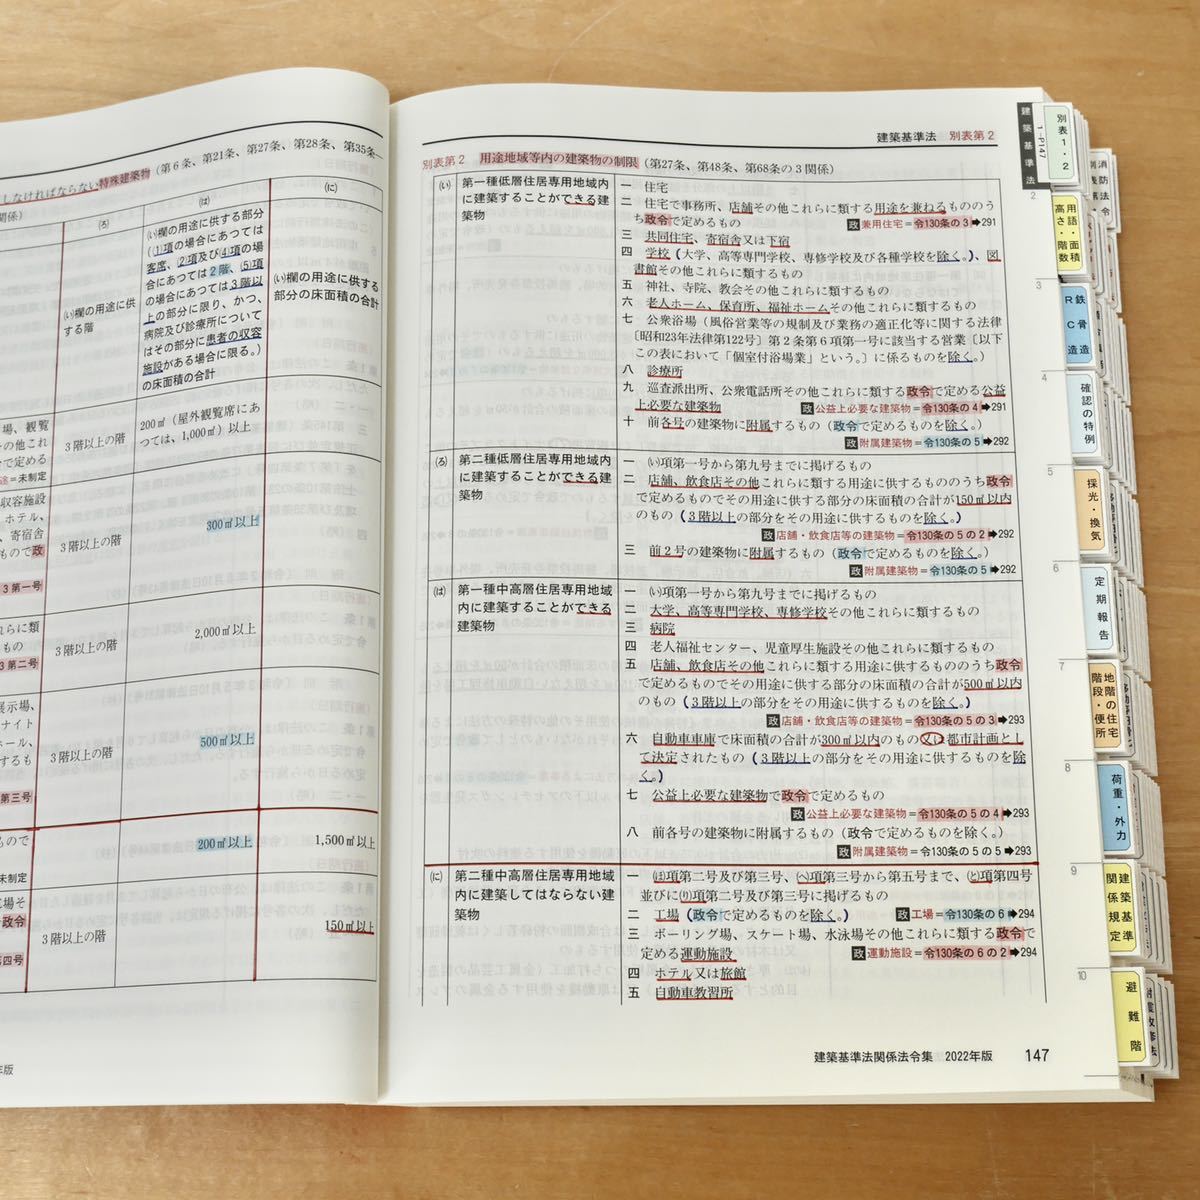 しなければならない特殊建築物(第6条、第21条、第27条、第28条、第35条―
関係)
(ろ)
(は)
(に)
(い)欄の用途に供
する階
(い)欄の用途に供する部分
((1)項の場合にあつては
客席、(2)項及び(4)項の場
合にあつては2階、(5)項
の場合にあつては3階以
上の部分に限り、かつ、
病院及び診療所について
はその部分に患者の収容
施設がある場合に限る。)
の床面積の合計
(い)欄の用途に供する
部分の床面積の合計
場、観覧
の他これ
で定める
途=未制定
3階以上の階
200㎡(屋外観覧席にあ
つては、1,000㎡)以上
収容施設
ホテル、
、寄宿舎
もので政
3第一号
3階以上の階
300㎡以上
れらに類
もの
3第二号
3階以上の階
2,000㎡以上
展示場、
ナイト
ホール、
するも
第三号
3階以上の階
500㎡以上
もので
未制定
200㎡以上
1,500㎡以上
工場そ
政令
第四号
3階以上の階
150㎡以上
年版
建築基準法 別表第2
別表第2 用途地域等内の建築物の制限(第27条、第48条、第68条の3関係)
(い)
第一種低層住居専用地域内
に建築することができる建
築物
一 住宅
二 住宅で事務所、店舗その他これらに類する用途を兼ねるもののう
ち政令で定めるもの 政 兼用住宅=令130条の3➔291
三 共同住宅、寄宿舎又は下宿
四 学校(大学、高等専門学校、専修学校及び各種学校を除く。)、図
書館その他これらに類するもの
五 神社、寺院、教会その他これらに類するもの
六 老人ホーム、保育所、福祉ホームその他これらに類するもの
七 公衆浴場(風俗営業等の規制及び業務の適正化等に関する法律
〔昭和23年法律第122号〕第2条第6項第一号に該当する営業〔以下
この表において「個室付浴場業」という。〕に係るものを除く。)
八 診療所
九 巡査派出所、公衆電話所その他これらに類する政令で定める公益
上必要な建築物 政 公益上必要な建築物=令130条の4➔291
十 前各号の建築物に附属するもの(政令で定めるものを除く。)
政 附属建築物=令130条の5➔292
(ろ)
第二種低層住居専用地域内
に建築することができる建
築物
一 (い)項第一号から第九号までに掲げるもの
二 店舗、飲食店その他これらに類する用途に供するもののうち政令
で定めるものでその用途に供する部分の床面積の合計が150㎡以内
のもの(3階以上の部分をその用途に供するものを除く。)
政 店舗・飲食店等の建築物=令130条の5の2➔292
三 前2号の建築物に附属するもの(政令で定めるものを除く。)
政 附属建築物=令130条の5➔292
(は)
第一種中高層住居専用地域
内に建築することができる
建築物
一 (い)項第一号から第九号までに掲げるもの
二 大学、高等専門学校、専修学校その他これらに類するもの
三 病院
四 老人福祉センター、児童厚生施設その他これらに類するもの
五 店舗、飲食店その他これらに類する用途に供するもののうち政令
で定めるものでその用途に供する部分の床面積の合計が500㎡以内
のもの(3階以上の部分をその用途に供するものを除く。)
政 店舗・飲食店等の建築物=令130条の5の3➔293
六 自動車車庫で床面積の合計が300㎡以内のもの又は都市計画とし
て決定されたもの(3階以上の部分をその用途に供するものを除
く。)
七 公益上必要な建築物で政令で定めるもの
政 公益上必要な建築物=令130条の5の4➔293
八 前各号の建築物に附属するもの(政令で定めるものを除く。)
政 附属建築物=令130条の5の5➔293
(に)
第二種中高層住居専用地域
内に建築してはならない建
築物
一 (ほ)項第二号及び第三号、(へ)項第三号から第五号まで、(と)項第四号
並びに(り)項第二号及び第三号に掲げるもの
二 工場(政令で定めるものを除く。) 政 工場=令130条の6➔294
三 ボーリング場、スケート場、水泳場その他これらに類する政令で
定める運動施設 政 運動施設=令130条の6の2➔294
四 ホテル又は旅館
五 自動車教習所
建築基準法関係法令集 2022年版 147
建築基準法
1-P147
別表1・2
2
用語・面積
高さ・階数
3
鉄骨造
RC
4
確認の特例
5
採光・換気
6
定期報告
7
地階の住宅
階段・便所
8
荷重・外力
9
建築基準
関係規定
10
避難階
消防法令